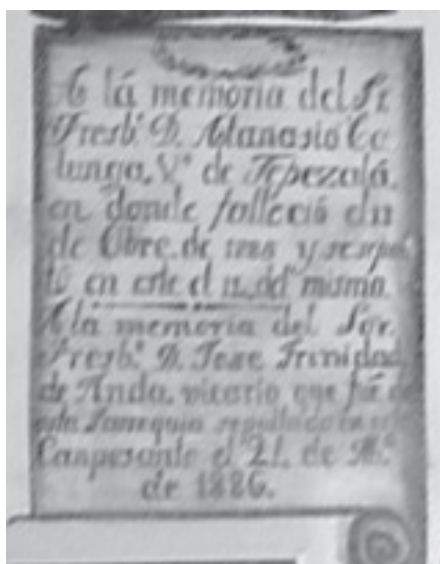 A lá memoria del Sr.
Presb.º D. Atanasio Co
lunga. V.º de Tepezalá.
en donde falleció el 11
de Obre. de y se sepul
tó en este el 12. del mismo.
A la memoria del Sor.
Presb.º D. Jose Trinidad
de Anda. vicario que fué de
esta Parroquia sepultado en este
Canposanto el 21. de
de 1886.